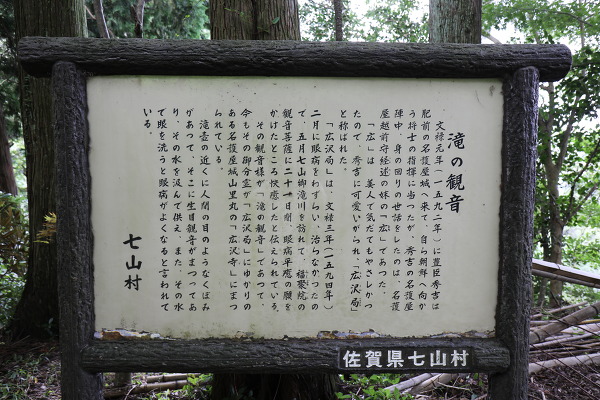 滝の観音
文禄元年(一五九二年)に豊臣秀吉は
肥前の名護屋城へ来て、自ら朝鮮へ向か
う将士の指揮に当つたが、秀吉の名護屋
陣中、身の回りの世話をしたのは、名護
屋越前守経述の妹の「広」であつた。
「広」は、美人で気だてもやさしかつ
たので、秀吉に可愛いがられ、「広沢局」
と称ばれた。
「広沢局」は、文禄三年(一五九四年)
二月に眼病をわずらい、治らなかつたの
で、五月七山御滝川を訪れて、福聚院の
観音菩薩に二十一日間、眼病平癒の願を
かけたところ快癒したと伝えられている。
その観音様が「滝の観音」であつて、
今もその御分霊が「広沢局」にゆかりの
ある名護屋城山里丸の「広沢寺」にまつ
られている。
滝壺の近くに人間の目のようなくぼみ
があつて、そこに生目観音がまつつてあ
り、その水を汲んで供え、また、その水
で眼を洗うと眼病がよくなると言われて
いる。
七山村
佐賀県七山村